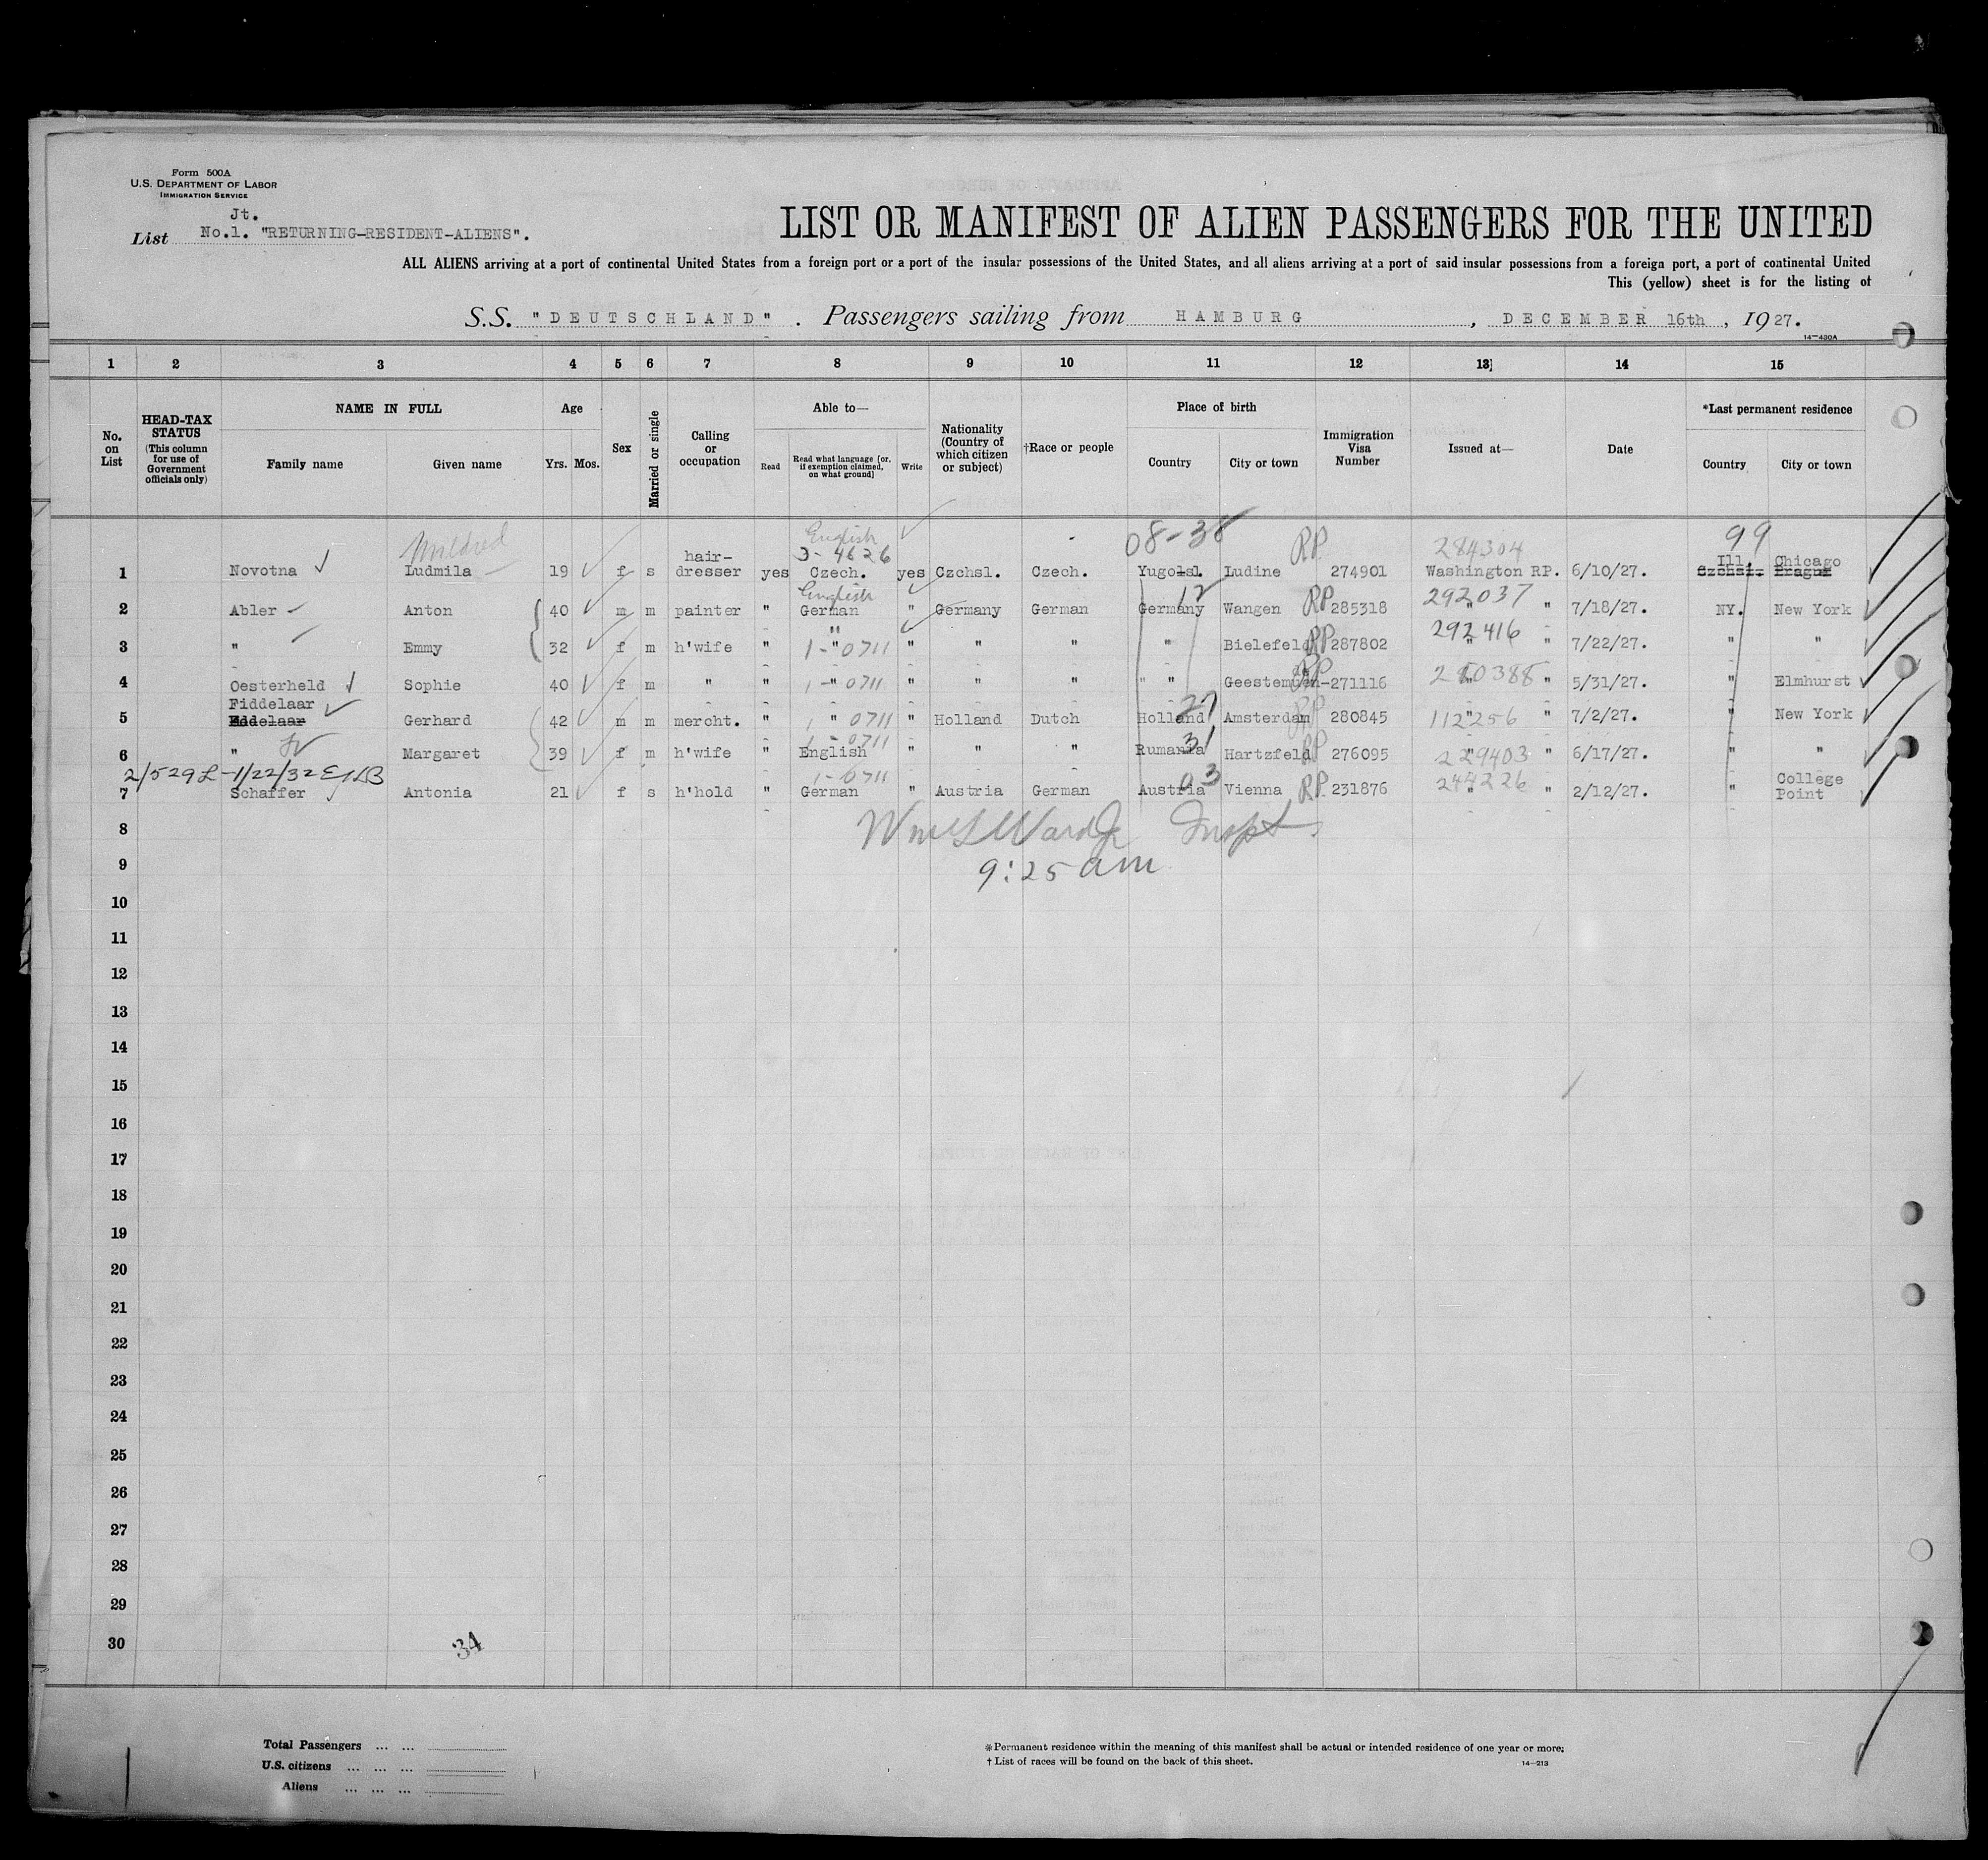 Form 500A
U.S. DEPARTMENT OF LABOR
IMMIGRATION SERVICE
Jt.
List No.1. "RETURNING-RESIDENT-ALIENS".
LIST OR MANIFEST OF ALIEN PASSENGERS FOR THE UNITED
ALL ALIENS arriving at a port of continental United States from a foreign port or a port of the insular possessions of the United States, and all aliens arriving at a port of said insular possessions from a foreign port, a port of continental United
This (yellow) sheet is for the listing of
S.S. "DEUTSCHLAND". Passengers sailing from HAMBURG, DECEMBER 16th, 1927.
14—400A
1 2 3 4 5 6 7 8 9 10 11 12 13 14 15
No. on List
HEAD-TAX STATUS (This column for use of Government officials only)
NAME IN FULL
Family name Given name
Age
Yrs. Mos.
Sex
Married or single
Calling or occupation
Able to—
Read Read what language [or, if exemption claimed, on what ground] Write
Nationality (Country of which citizen or subject)
†Race or people
Place of birth
Country City or town
Immigration Visa Number
Issued at—
Date
*Last permanent residence
Country City or town
Mildred English 3-4626 08-38 RP 284304 99
hair- Ill. Chicago
1 Novotna Ludmila 19 f s dresser yes Czech. yes Czchsl. Czech. Yugolsl. Ludine 274901 Washington RP. 6/10/27. Czchsl. Prague
English 12 292037
2 Abler Anton 40 m m painter " German " Germany German Germany Wangen RP 285318 " " 7/18/27. NY. New York
" 292416
3 " Emmy 32 f m h'wife " 1-"0711 " " " " Bielefeld RP 287802 " " 7/22/27. " "
RP 280388
4 Oesterheld Sophie 40 f m " " 1-"0711 " " " " " Geestemuen-271116 " " 5/31/27. " Elmhurst
Fiddelaar 27
5 Eddelaar Gerhard 42 m m mercht. " " 0711 " Holland Dutch Holland Amsterdam RP 280845 112256 " " 7/2/27. " New York
1-0711 31
6 " Margaret 39 f m h'wife " English " " " Rumania Hartzfeld RP 276095 229403 " 6/17/27. " "
2/529L-1/22/32 1-0711 03 244226 College
7 Schaffer Antonia 21 f s h'hold " German " Austria German Austria Vienna RP 231876 " " 2/12/27. " Point
8
Wm L Ward Jr Inspt.
9
9:25 am
10
11
12
13
14
15
16
17
18
19
20
21
22
23
24
25
26
27
28
29
30
34
Total Passengers ... ...
U.S. citizens ... ... ...
Aliens ... ... ...
*Permanent residence within the meaning of this manifest shall be actual or intended residence of one year or more.
† List of races will be found on the back of this sheet.
14—213